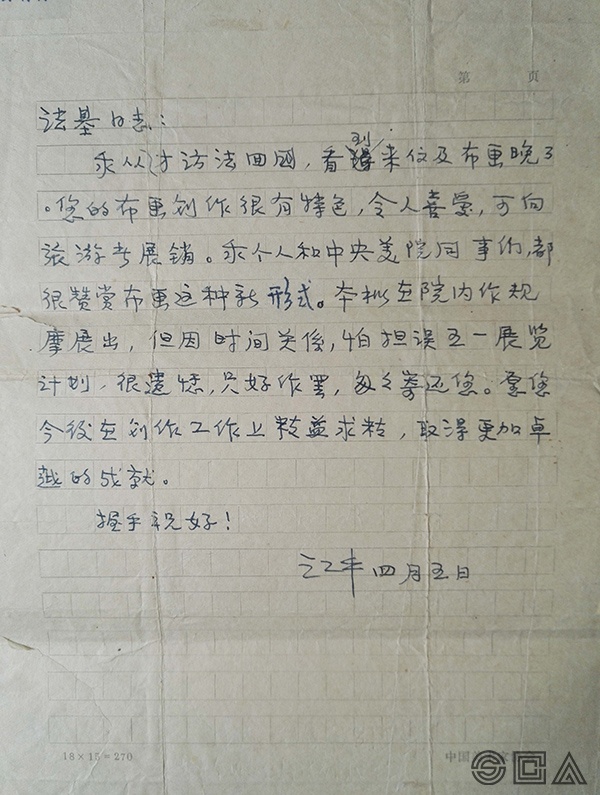 第 页
法基同志:
我从才访法回國,看到来信及布画晚了
。您的布画创作很有特色,令人喜爱,可向
旅游者展销。我个人和中央美院同事们,都
很赞赏布画这种新形式。本拟在院内作规
摩展出,但因时间关係,怕担误五一展览
计划,很遗憾,只好作罢,匆匆寄还您。愿您
今後在创作工作上精益求精,取得更加卓
越的成就。
握手祝好!
江丰 四月五日
18×15=270
中国美
SCA